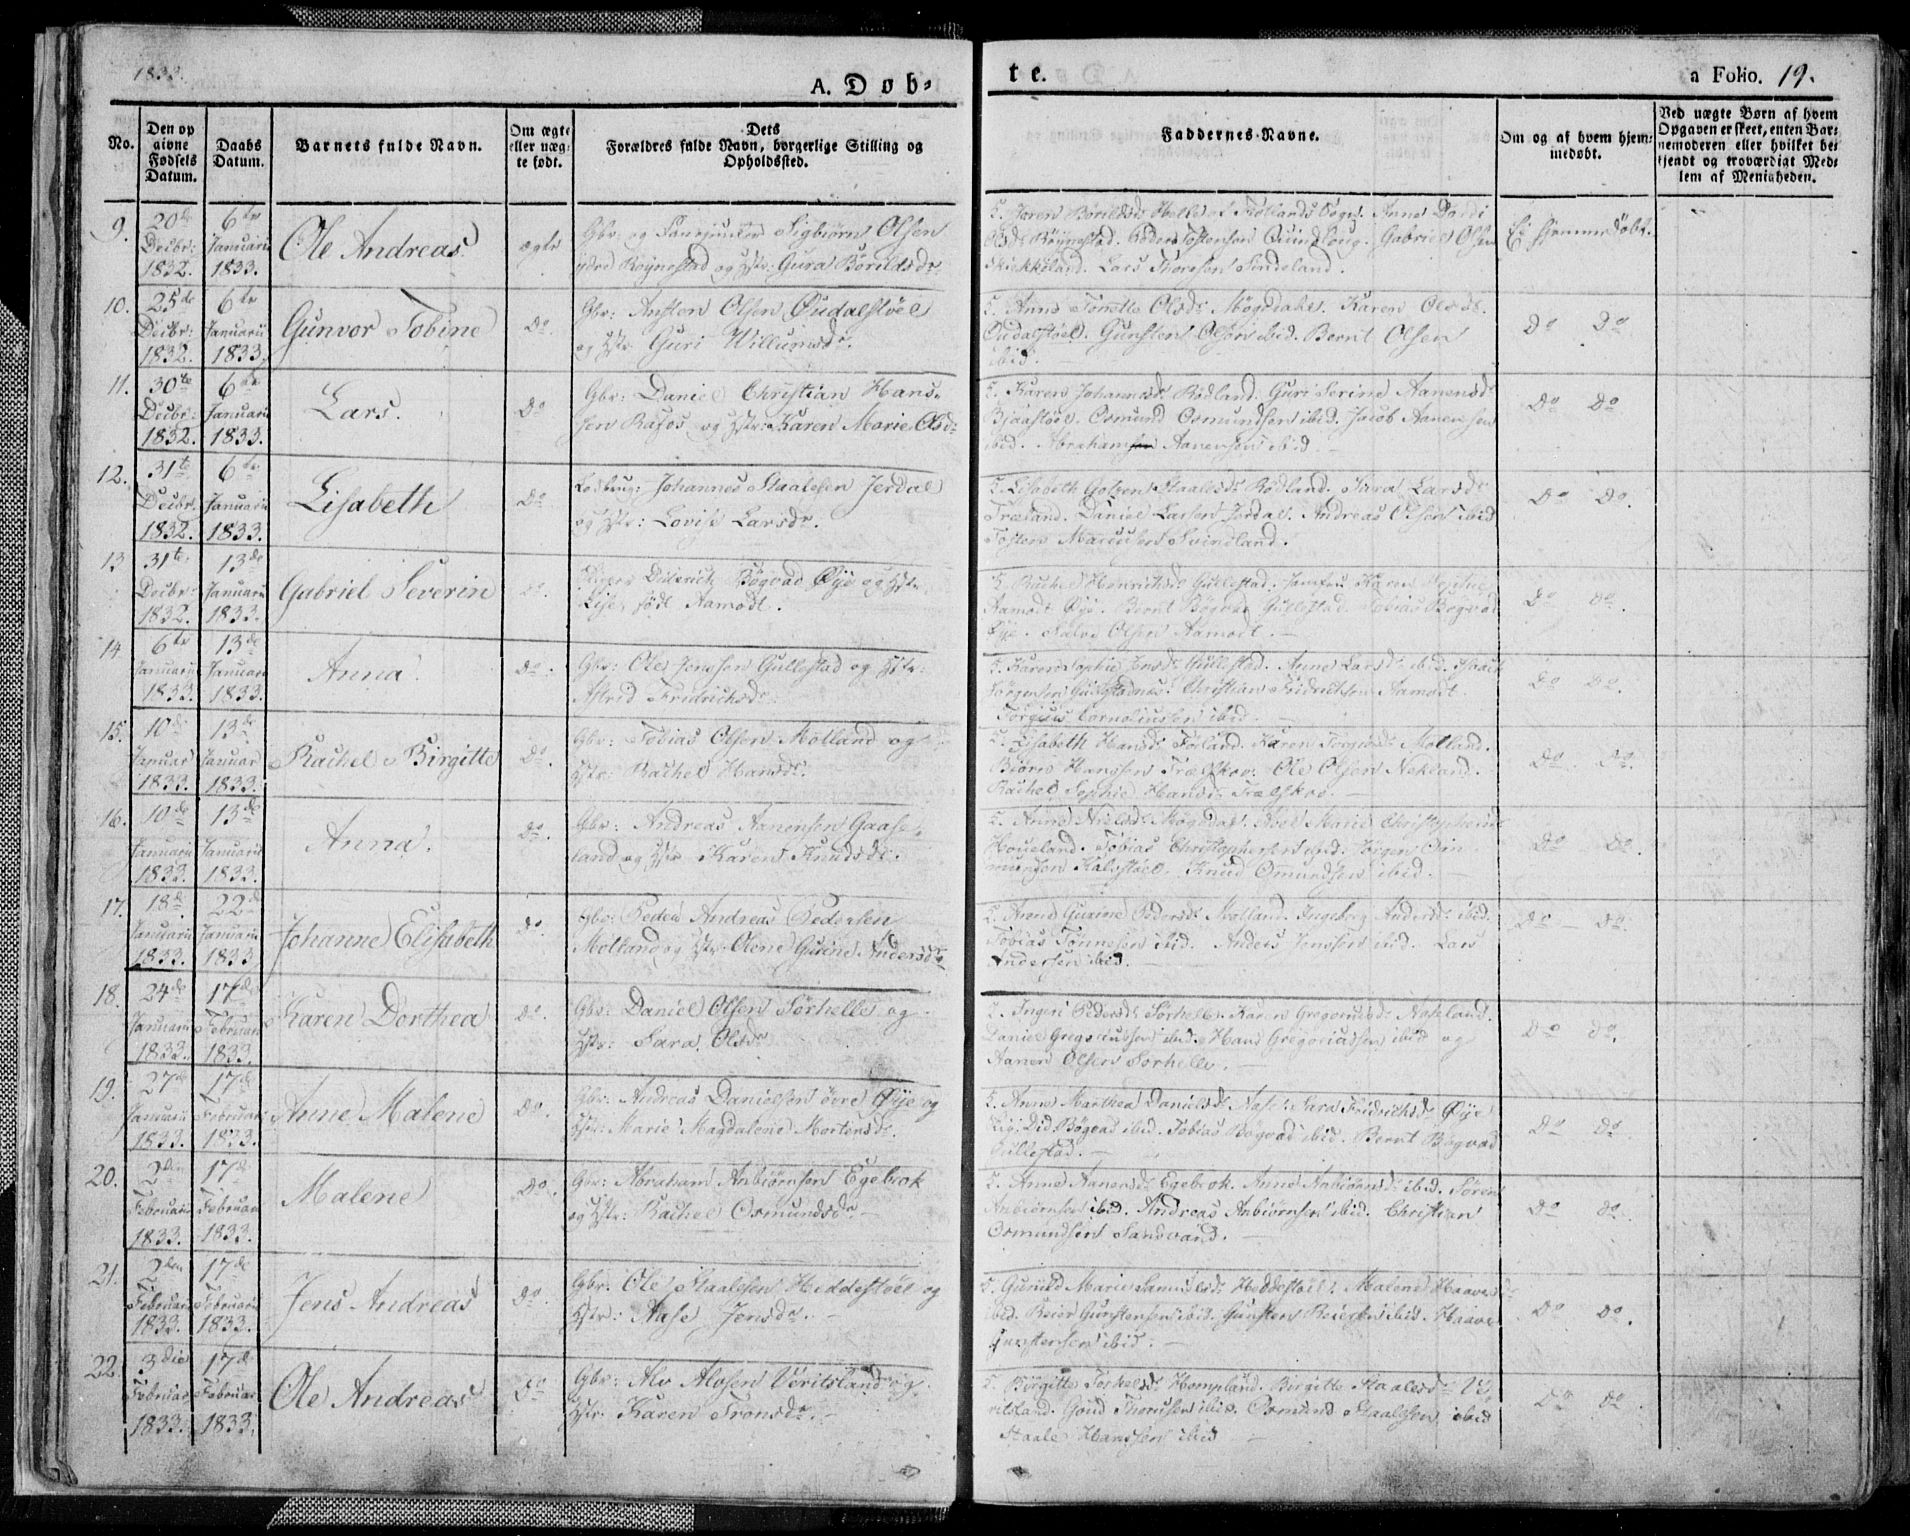 1833.
A. Døb-
te.
a Folio. 19.
No.
Den op
givne
Fødsels
Datum.
Daabs
Datum.
Barnets fulde Navn.
Om ægte
eller uæg-
te født.
Dets
Forældres fulde Navn, borgerlige Stilling og
Opholdssted.
Faddernes Navne.
Om og af hvem hjem-
medøbt.
Ved uægte Børn af hvem
Opgaven er skeet, enten Bar-
nemoderen eller hvilket be-
kjendt og troværdigt Med-
lem af Menigheden.
9.
20de
Decbr:
1832.
6te
Januarii
1833.
Ole Andreas
ægte
Gbr: og Sigbiørn Olsen
ydre Røynestad og Hstr: Gura Børildsdr.
Helle af Sogn. Anne
Røynestad. Gabriel Olsen
Lars
Ei hjemmedøbt.
10.
25de
Decbr:
1832.
6te
Januarii
1833.
Gunvor Tobine
Do
Gbr: Austen Olsen Øudalstøel
og Hstr: Guri Willumsdr.
5. Anne Tonette Olsdr. Møgedahl. Karen Olsdr.
Øudalstøel. Gunsten Olsen ibid. Bernt Olsen
ibid.
Do Do
11.
30te
Decbr:
1832.
6te
Januarii
1833.
Lars.
Do
Gbr: Daniel Christian Hans-
sen Røsøs og Hstr: Karen Marie Olsdr:
5. Karen Johannesdr. Rødland. Guri Serine Aanensdr.
Bjaastøel. Osmund Osmundsen ibid. Jacob Aanensen
ibid. Abraham Aanensen ibid
Do Do
12.
31te
Decbr:
1832.
6te
Januarii
1833.
Lisabeth
Do
Johannes Staalesen Jerdal
og Hstr: Lovise Larsdr.
5. Lisabeth Staalesdr. Rødland. Sara Larsdr.
Træland. Daniel Larsen Jerdal. Andreas Olsen ibid
Tosten Marcussen Svindland.
Do Do.
13
31te
Decbr:
1832.
13de
Januarii
1833.
Gabriel Severin
Do
Diderich Bøgvad Øye og Hstr:
Lise, født Aamodt.
5. Rachel Henrichsdr. Gullestad. Jomfru Karen
Aamodt Øye. Bernt Bøgvad Gullestad. Tobias Bøgvad
Øye. Salve Olsen Aamodt.
Do Do.
14
6te
Januarii
1833.
13de
Januarii
1833.
Anna.
Do.
Gbr: Ole Jenssen Gullestad og Hstr:
Astrid Fridrichsdr.
5. Karen Sophie Jensdr. Gullestad. Anne Larsdr. ibid. Isaack
Jørgensen Gullestadnes. Christian Fridrichsen Aamodt.
Torgius Corneliussen ibid.
Do Do.
15.
10de
Januar
1833.
13de
Januar
1833.
Rachel Birgitte
Do.
Gbr: Tobias Olsen Molland og
Hstr: Rachel Hansdr.
5. Lisabeth Hansdr. Førland. Karen Molland.
Biørn Hanssen Trælskov. Ole Olsen Nekland.
Rachel Sophie Hansdr. Trælskov.
Do Do.
16.
10de
Januarii
1833.
13de
Januarii
1833.
Anna.
Do.
Gbr: Andreas Aanensen Gaase-
land og Hstr: Karen Knudsdr.
5. Anne Møgedal. Marie Christophersdr.
Houeland. Tobias Christophersen ibid.
Kalvstøel. Knud Omundsen ibid.
Do Do.
17.
18de
Januarii
1833.
22de
Januarii
1833
Johanne Elisabeth
Do.
Gbr: Peder Andreas Pedersen
Molland og Hstr: Olene Gurine Andersdr.
5. Anne Gurine Pedersdr. Molland. Ingeborg Andersdr. ibid.
Tobias Tønnesen ibid. Anders Jenssen ibid. Lars
Andersen ibid.
Do Do.
18.
24de
Januarii
1833.
17de
Februar
1833.
Karen Dorthea
Do.
Gbr: Daniel Olsen Sørhelle og
Hstr: Sara Olsdr.
5. Ingeri Pedersdr. Sørhelle. Karen Gregoriusdr. Nakland.
Daniel Gregoriussen ibid. Hans Gregoriussen ibid og
Aanen Olsen Sørhelle.
Do Do.
19.
27de
Januarii
1833.
17de
Februar
1833.
Anne Malene
Do.
Gbr: Andreas Danielsen øvre Øye og
Hstr: Marie Magdalene Mortensdr.
5. Anne Marthea Danielsdr. Sara Fridrichsdr. Øye
Did Bøgvad ibid. Tobias Bøgvad ibid. Bernt Bøgvad
Gullestad.
Do Do.
20.
2den
Februarii
1833.
17de
Februar
1833.
Malene
Do.
Gbr: Abraham Anbiørnsen Egebrok
og Hstr: Rachel Osmundsdr.
5. Anne Aanensdr. Egebrok. Anne Anbiørnsdr. ibid. Søren
Anbiørnsen ibid. Andreas Anbiørnsen ibid. Christian
Osmundsen Sandvand.
Do Do.
21.
2den
Februarii
1833.
17de
Februarii
1833.
Jens Andreas
Do.
Gbr. Ole Staalesen Heddestøel og
Hstr: Aase Jensdr.
5. Gunild Marie Samuelsdr. Heddestøel. Malene
ibid. Reier Gunstensen ibid. Gunsten Reiersen ibid. Haave
Gunstensen ibid.
Do Do.
22.
3die
Februar
1833.
17de
Februar
1833.
Ole Andreas
Do
Gbr: Alv Alvsen Veritsland og
Hstr: Karen Tronsdr.
5. Birgitte Torkelsdr. Hompland. Birgitte Staalesdr. Ve-
ritsland. ibid. Osmund Staalesen ibid
Staale Hanssen ibid
Do Do.